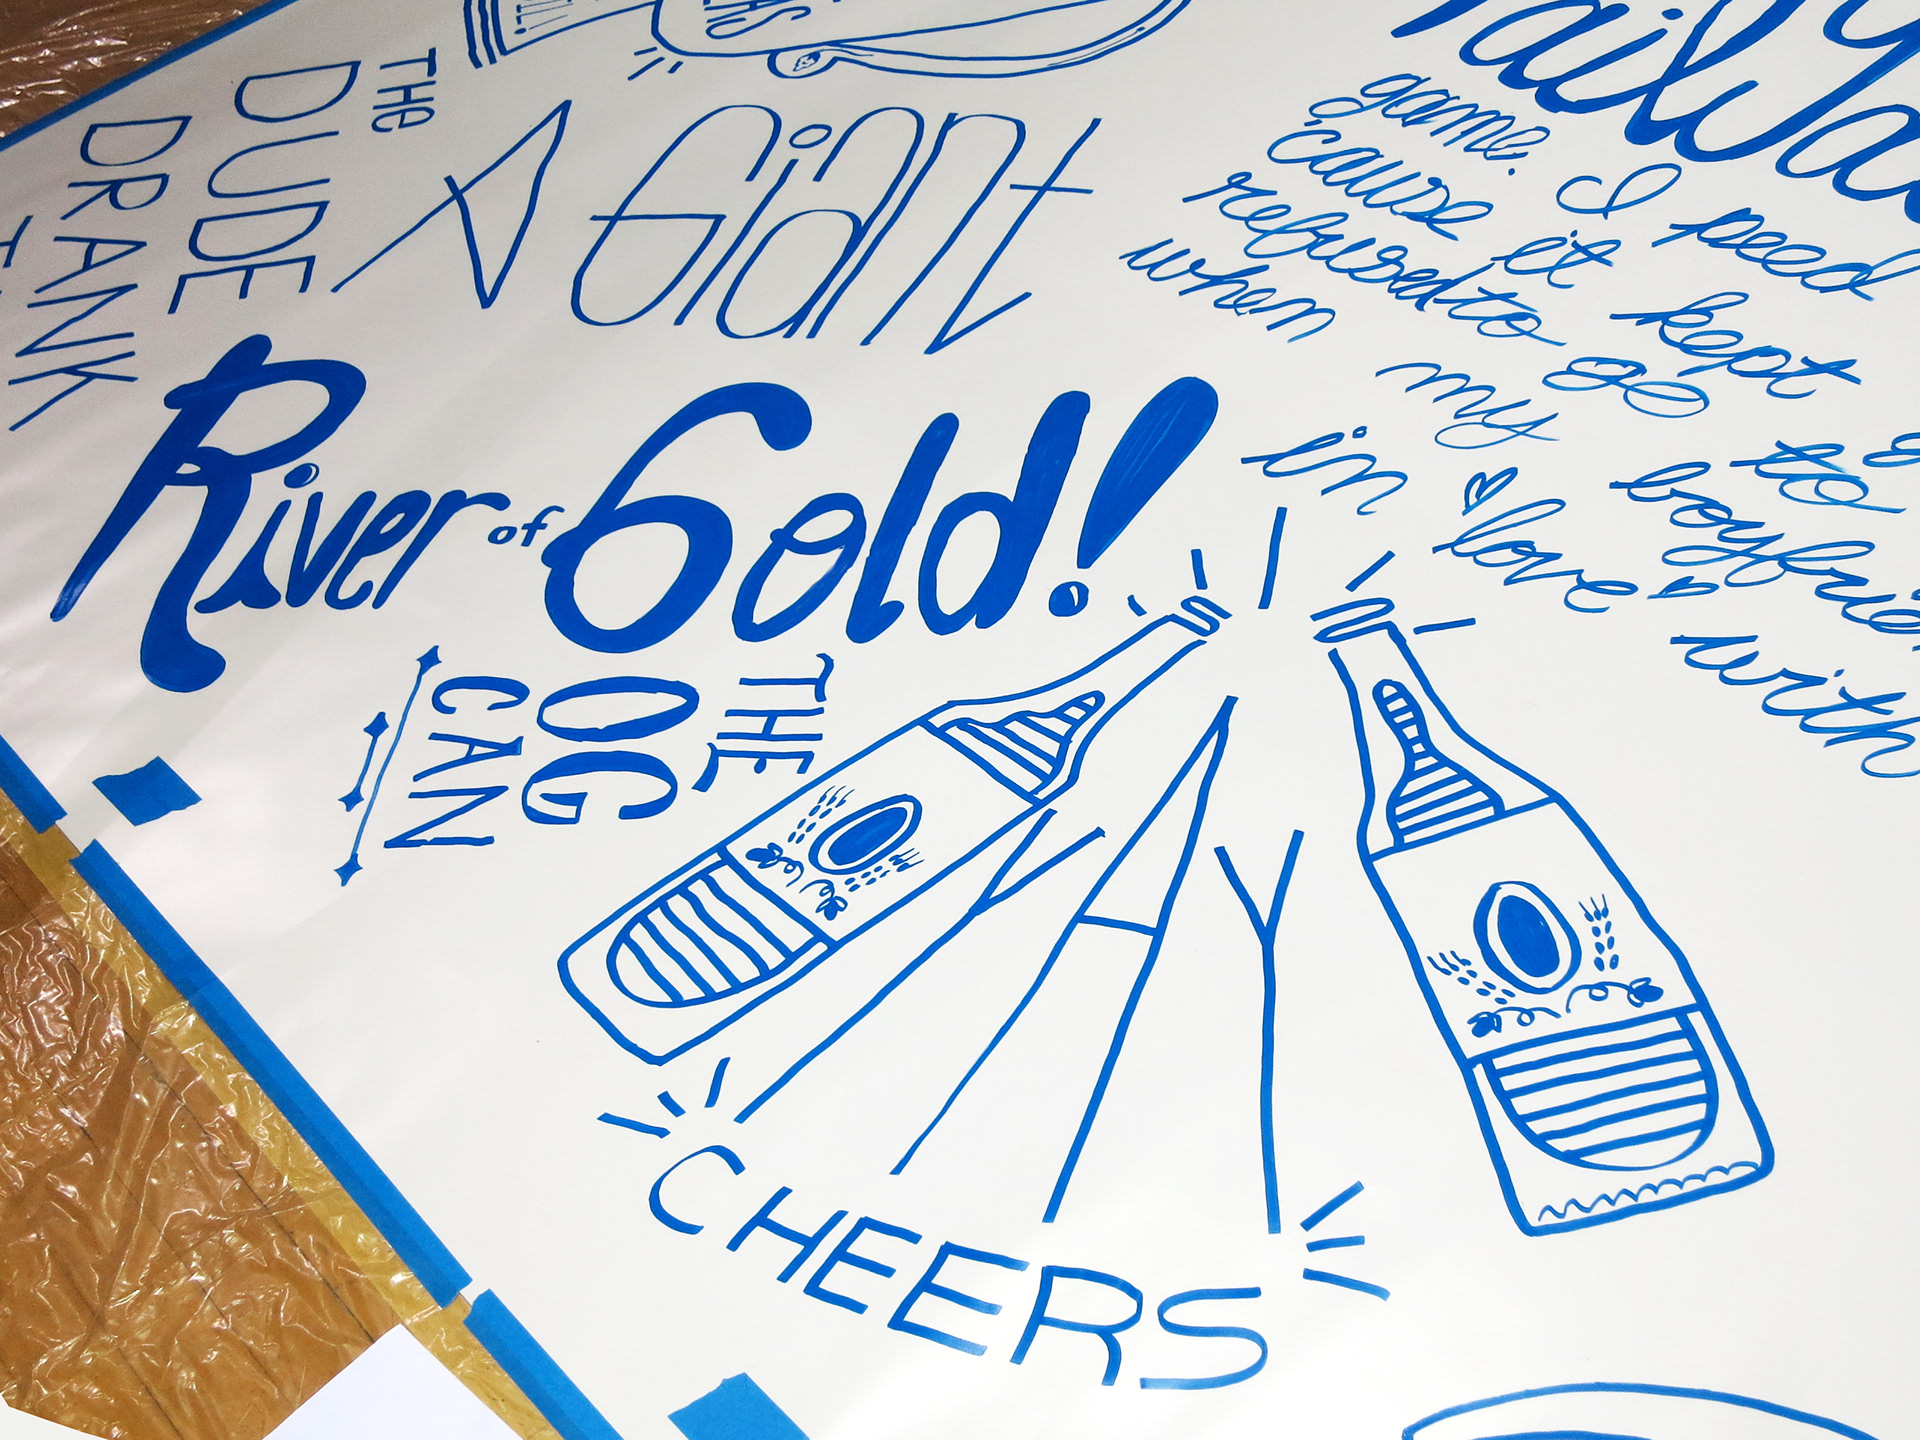 THE
DUDE
DRANK
A Giant
River of Gold!
THE
OG
CAN
YAY
CHEERS
game. I need
'cause it kept
refused to go to
when my boyfrie
in love with